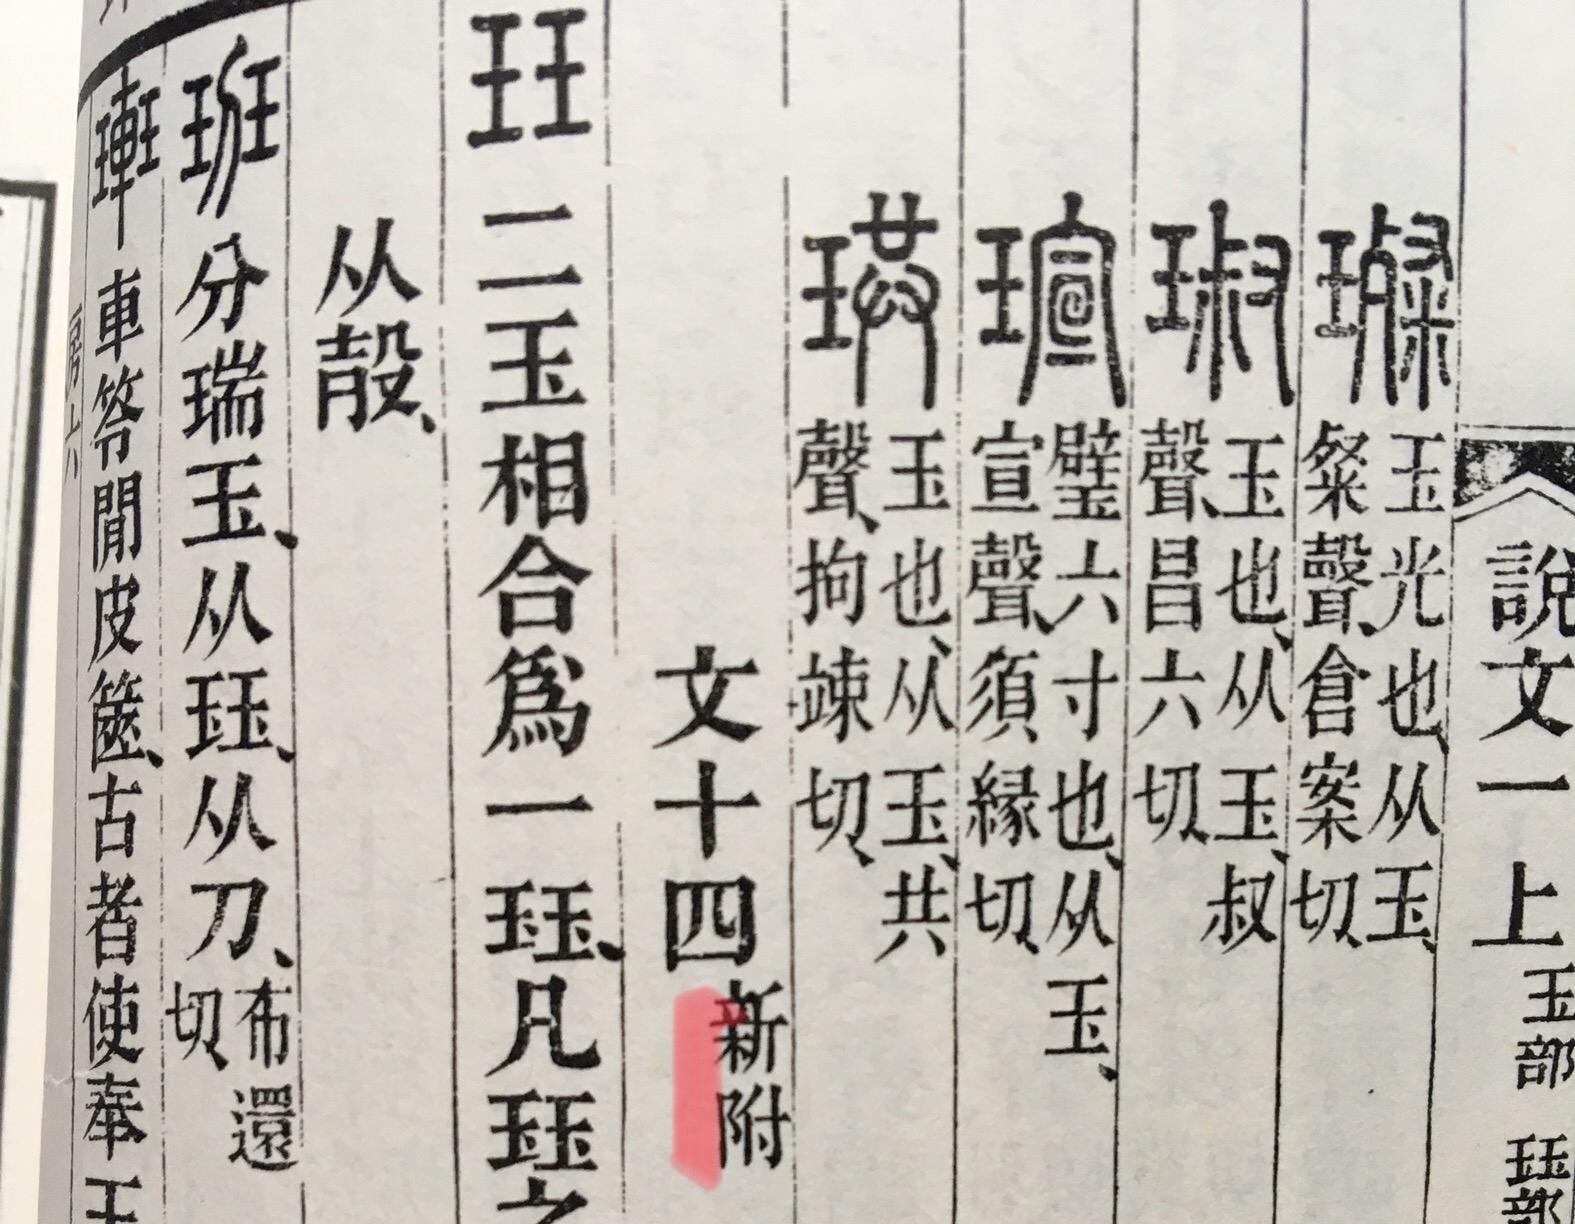 說文一上 玉部 珏部
璨 玉光也、从玉、粲聲、倉案切、
琡 玉也、从玉、叔聲、昌六切、
瑄 璧六寸也、从玉、宣聲、須緣切、
珙 玉也、从玉、共聲、拘竦切、
文十四 新附
珏 二玉相合爲一珏、凡珏之
从㱿、
班 分瑞玉、从珏、从刀、布還切、
車笭閒皮篋、古者使奉玉